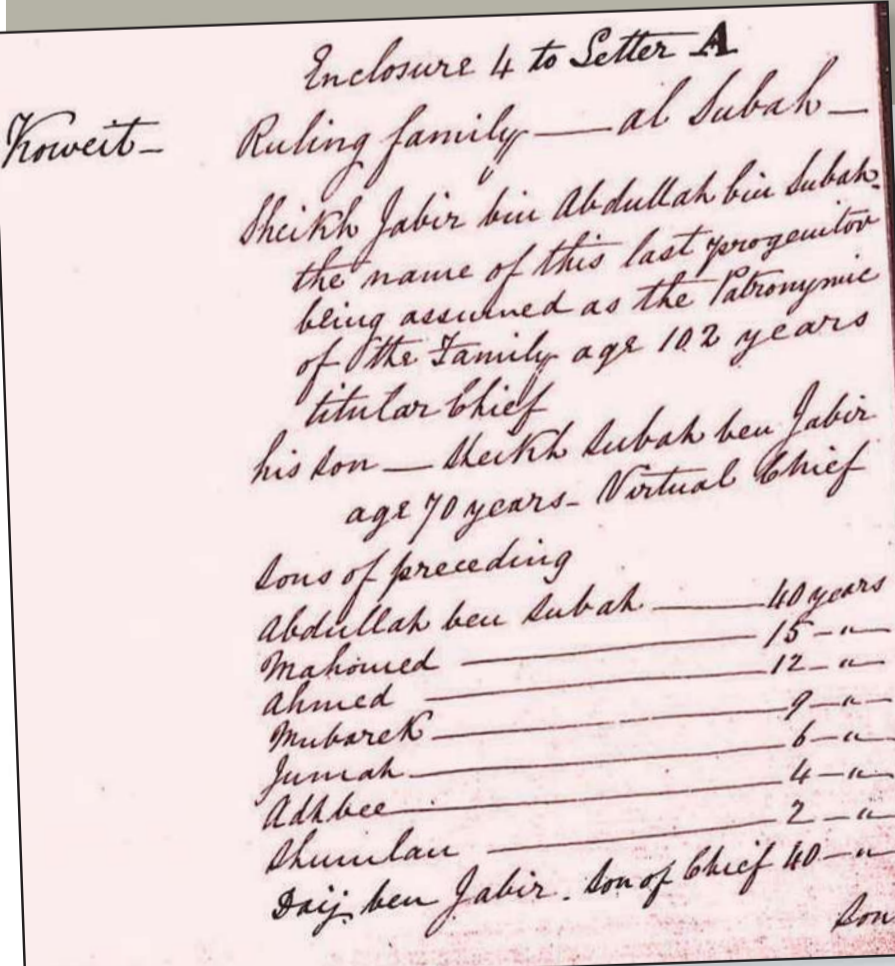 Enclosure 4 to Letter A
Koweit – Ruling family — al Subah —
Sheikh Jabir bin Abdullah bin Subah.
the name of this last progenitor
being assumed as the Patronymic
of the Family age 102 years
titular Chief
his son — Sheikh Subah ben Jabir
age 70 years – Virtual Chief
Sons of preceding
Abdullah ben Subah — 40 years
Mahomed — 15 – "
Ahmed — 12 – "
Mubarek — 9 – "
Jumah — 6 – "
Adhbee — 4 – "
Shumlan — 2 – "
Daij ben Jabir. Son of Chief 40 – "
Son